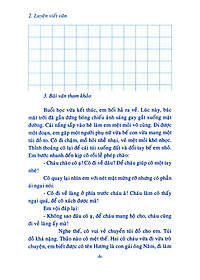 2. Luyện viết văn
3. Bài văn tham khảo
Buổi học vừa kết thúc, em hối hả ra về. Lúc này, bác
mặt trời đã gần đứng bóng chiếu ánh sáng gay gắt xuống mặt
đường. Cái nắng sắp vào hè làm em mệt mỏi vô cùng. Đi được
một đoạn, em gặp một người phụ nữ vừa bế con vừa mang một
túi đồ to. Cô chậm, mồ hôi nhễ nhại, khuôn mặt đỏ bừng.
Thỉnh thoảng cô lại để cái túi xuống đất và đổi tay bế em nhỏ.
Em bước nhanh đến kịp cô rồi lễ phép chào:
- Cháu chào cô ạ! Cô về đâu đấy ạ? Để cháu giúp cô một
tay nhé!
Cô quay lại nhìn em với nét mặt mừng rỡ nhưng có phần
ái ngại nói:
- Cô đi về làng ở phía trước cháu ạ! Cháu làm cô thấy
ngại quá, để cô xách được mà!
Em vội đáp lại:
- Không sao đâu cô ạ, để cháu mang hộ cho, cháu cũng
đi về làng ấy mà!
Nghe thế, cô vui vẻ chuyển túi đồ cho em. Túi
đồ khá nặng. Thảo nào cô mệt thế. Hai cô cháu vừa đi vừa trò
chuyện, em biết được cô tên Hương là con gái ông Năm, đi làm